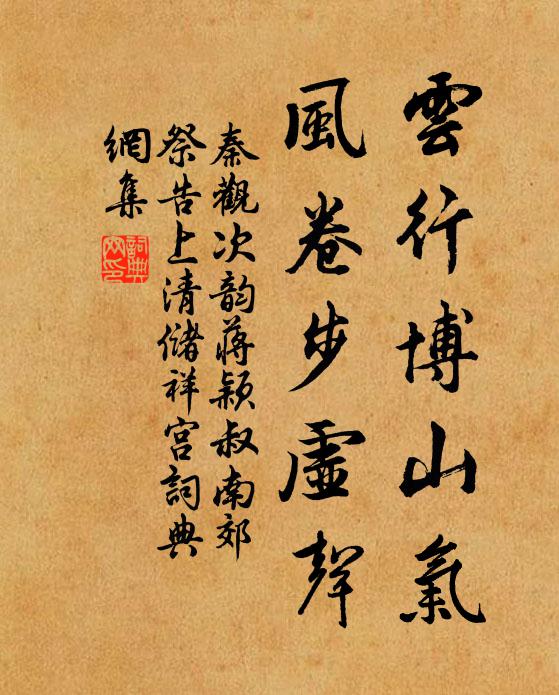 雲行博山氣
風卷步虛聲
秦觀次韵蔣穎叔南郊
祭告上清儲祥宮詞典
網集
詞典
网印